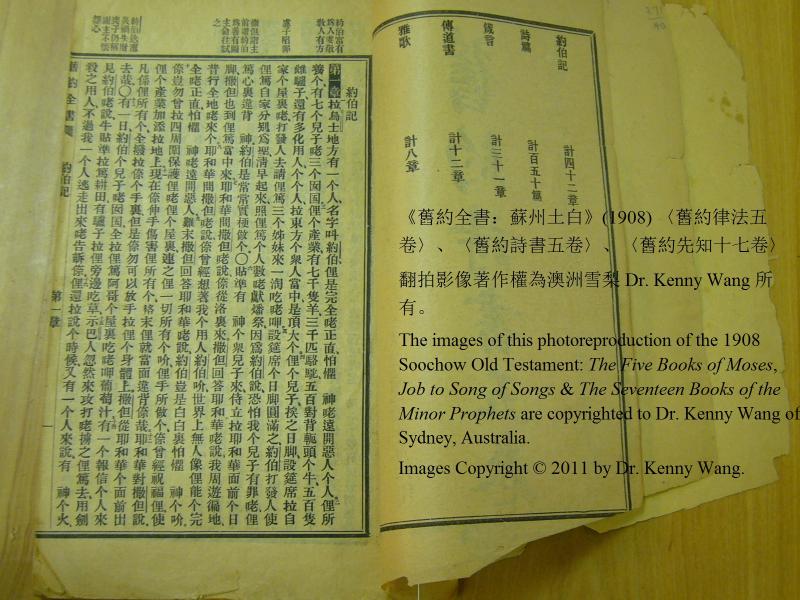 約伯記 計四十二章
詩篇 計百五十篇
箴言 計三十一章
傳道書 計十二章
雅歌 計八章
約伯記
第一章拉烏士地方有一个人名字叫約伯俚是完全咾正直怕懼 神咾遠開惡人个人俚所
養个有七个兒子咾三个囡囝俚个產業有七千隻羊三千匹駱駝五百對背軛頭个牛五百隻
雌驢子還有多化用人个个人拉東方个衆人當中是頂大个俚个兒子挨之日脚設筵席拉自
家个屋裏咾打發人去請俚篤三个姊妹來一淘吃咾呷設筵席个日脚圓滿之約伯打發人使
俚篤自家分別爲聖清早起來照俚篤人个數咾獻燔祭因爲約伯說恐怕我个兒子有罪咾俚
篤心裏違背 神約伯是常常實梗做个〇貼準有 神个衆兒子來侍立拉耶和華面前个日
脚撒但也到俚篤當中來耶和華問撒但咾說倷從洛裏來撒但回答耶和華咾說我周遊徧地
普行全地咾來个耶和華問撒但咾說倷曾經想著我个用人約伯吤世界上無人像俚能个完
全咾正直怕懼 神咾遠開惡个人難末撒但回答耶和華咾說約伯豈是白白裏怕懼 神个吤
倷豈勿曾拉四周圍保護俚咾俚个屋裏連之俚一切所有个吤俚手所做个倷曾經祝福俚使
俚个產業加添拉地上現在倷伸手傷害俚所有个俚就當面違背倷哉耶和華對撒但說
凡係俚所有个全歸拉倷个手裏但是倷勿可以放手拉俚个身體上撒但從耶和華个面前出
去哉〇有一日約伯个兒子咾囡囝全拉俚篤阿哥个屋裏吃咾呷葡萄汁有一个報信个人來
見約伯咾說牛貼準拉篤耕田有驢子拉俚旁邊吃草示巴人忽然來攻打咾擄之俚篤去用劍
殺之用人不過我一个人逃走出來咾告訴倷俚還拉說个時候又有一个人來說有 神个火
約伯富有
爲人虔敬
敎人有方
慮子陷罪
舊約全書 約伯記 第一章 一
《舊約全書：蘇州土白》(1908) 〈舊約律法五
卷〉、〈舊約詩書五卷〉、〈舊約先知十七卷〉
翻拍影像著作權為澳洲雪梨 Dr. Kenny Wang 所
有。
The images of this photoreproduction of the 1908
Soochow Old Testament: The Five Books of Moses,
Job to Song of Songs & The Seventeen Books of the
Minor Prophets are copyrighted to Dr. Kenny Wang of
Sydney, Australia.
Images Copyright © 2011 by Dr. Kenny Wang.